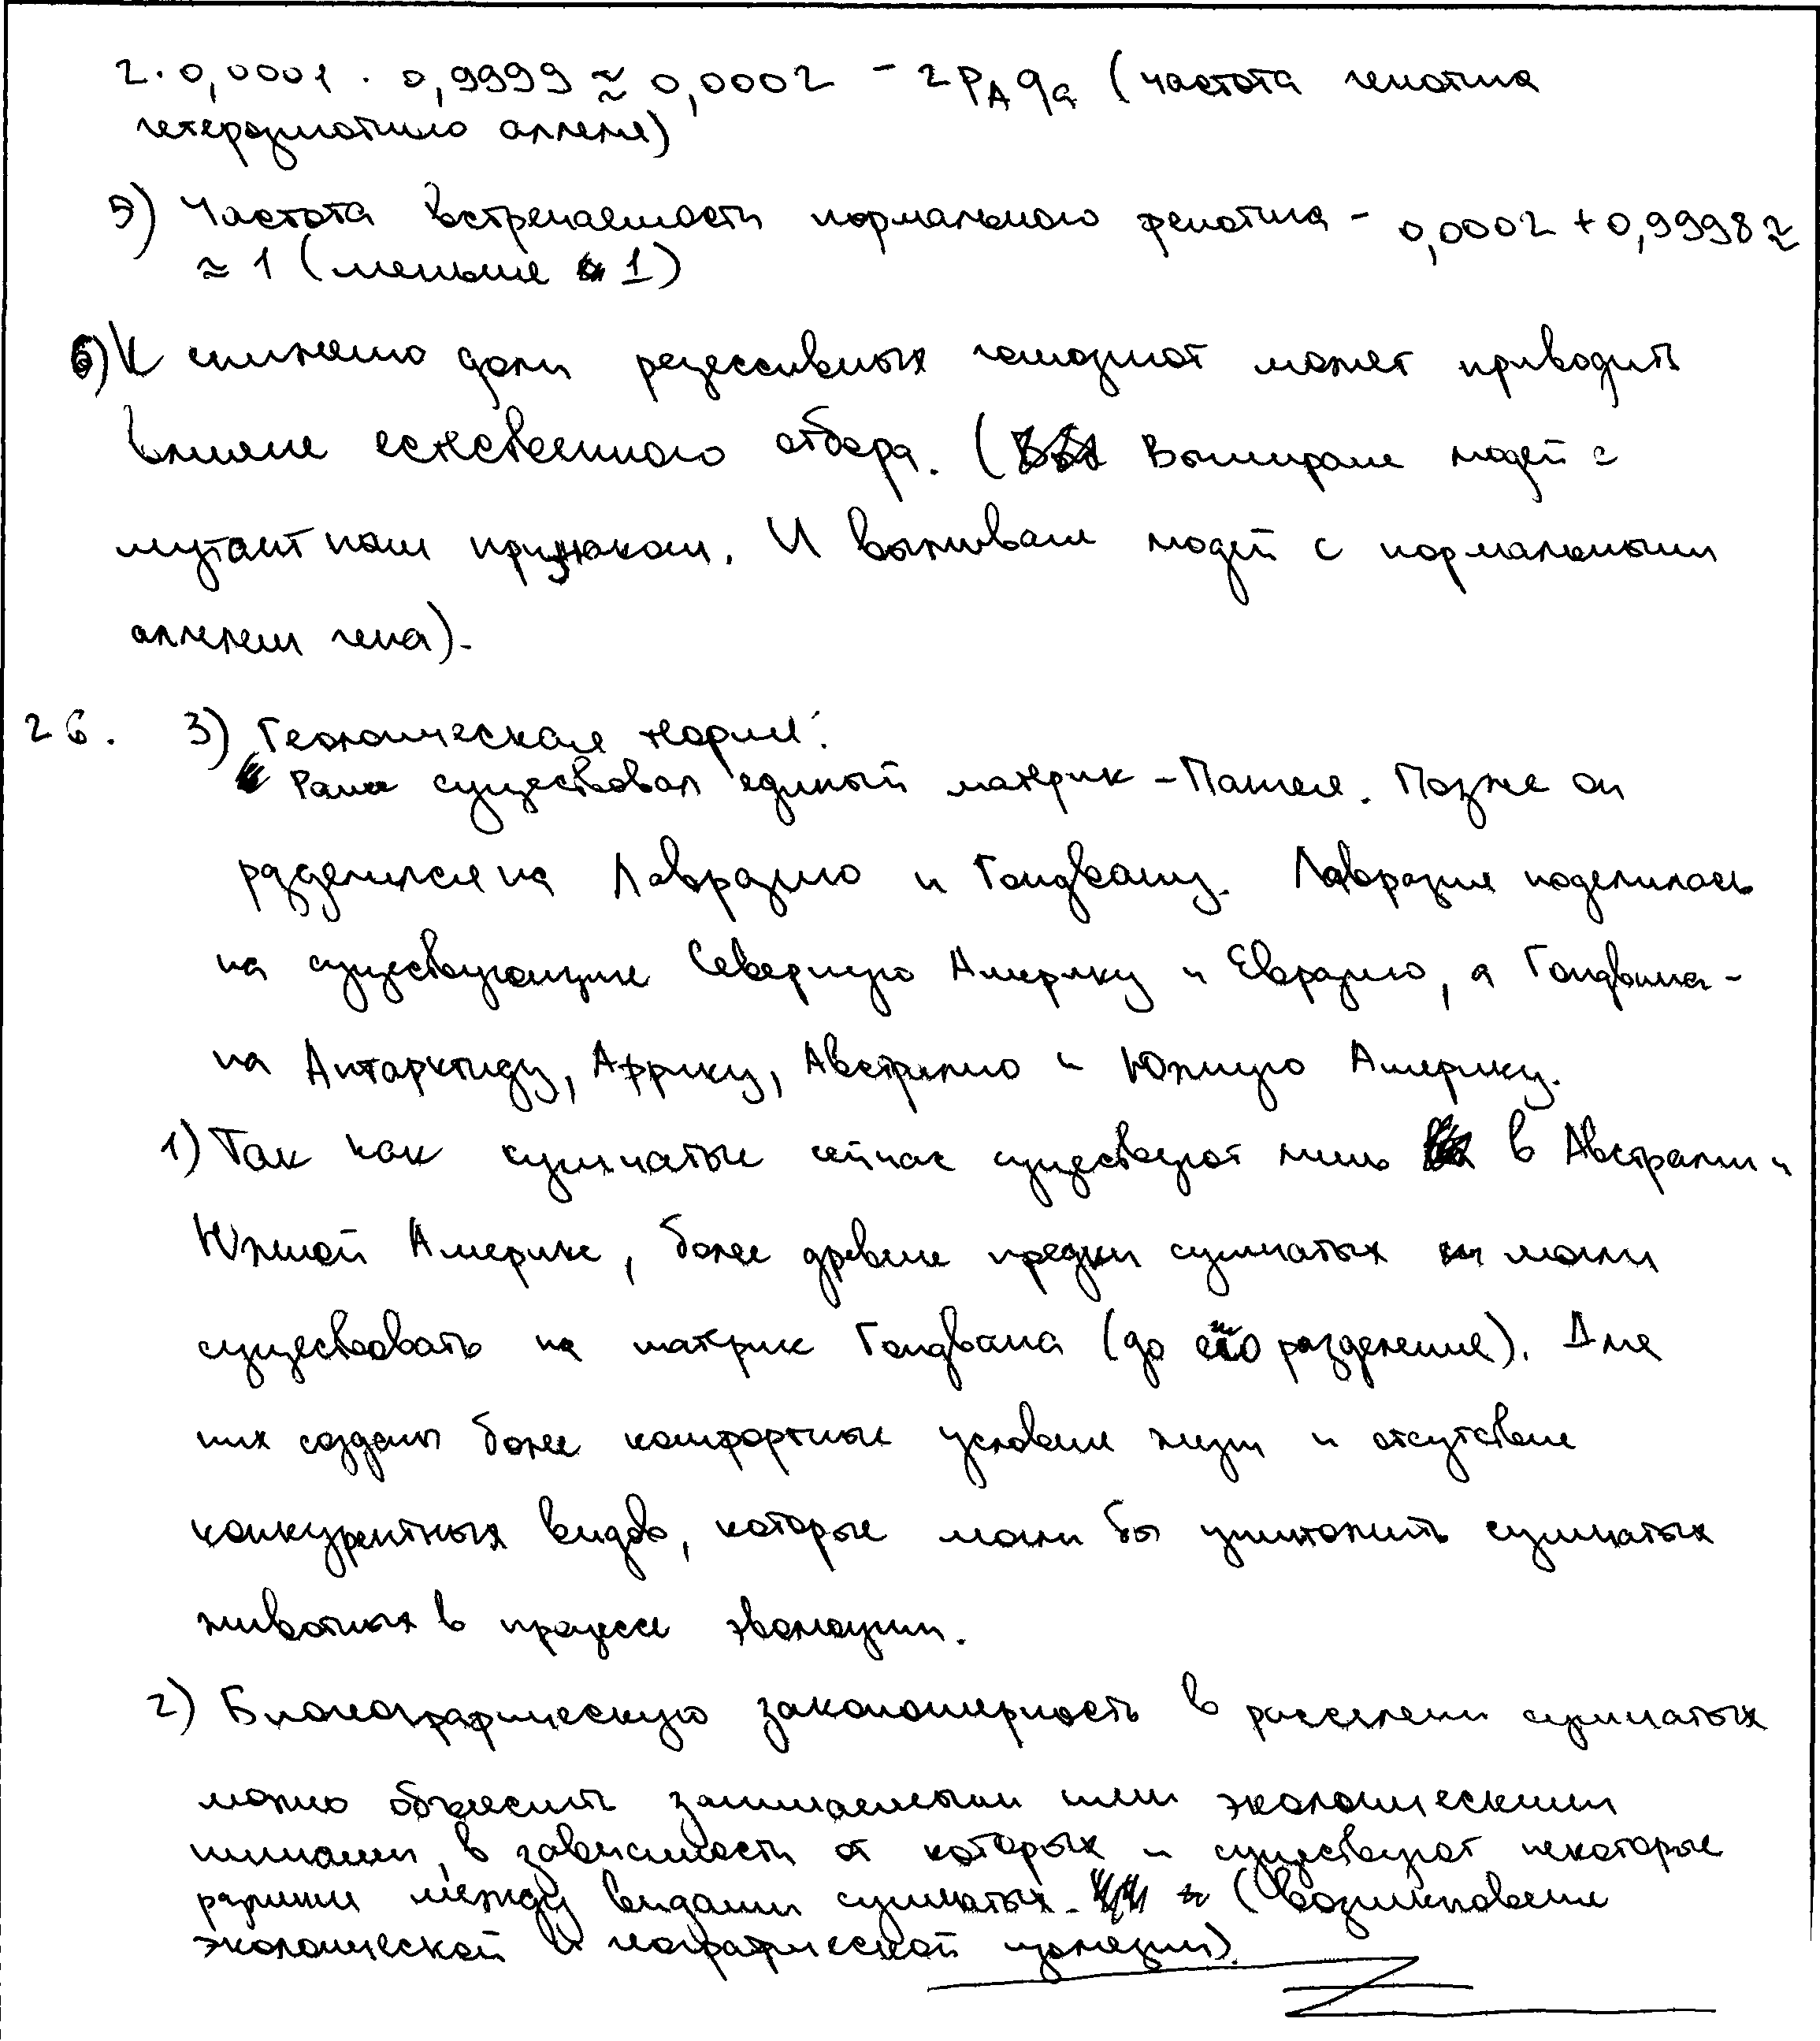 2·0,0001 · 0,9999 ≈ 0,0002 - 2pAqa (частота генотипа
гетерозиготного аллеля)
5) Частота встречаемости нормального фенотипа - 0,0002 + 0,9998 ≈
≈ 1 (меньше 1)
6) К снижению доли рецессивных гомозигот может приводить
влияние естественного отбора. (Вымирание людей с
мутантным признаком. И выживание людей с нормальным
аллелем гена).
26. 3) Геологическая теория:
Ранее существовал единый материк - Пангея. Позже он
разделился на Лавразию и Гондвану. Лавразия поделилась
на существующие Северную Америку и Евразию, а Гондвана -
на Антарктиду, Африку, Австралию и Южную Америку.
1) Так как сумчатые сейчас существуют лишь в Австралии и
Южной Америке, более древние предки сумчатых могли
существовать на материк Гондвана (до его разделения). Для
них созданы более комфортные условия жизни и отсутствие
конкурентных видов, которые могли бы уничтожить сумчатых
животных в процессе эволюции.
2) Биогеографическую закономерность в расселении сумчатых
можно объяснить занимаемыми ими экологическими
нишами, в зависимости от которых и существуют некоторые
различия между видами сумчатых. (Возникновение
экологической и географической изоляции).